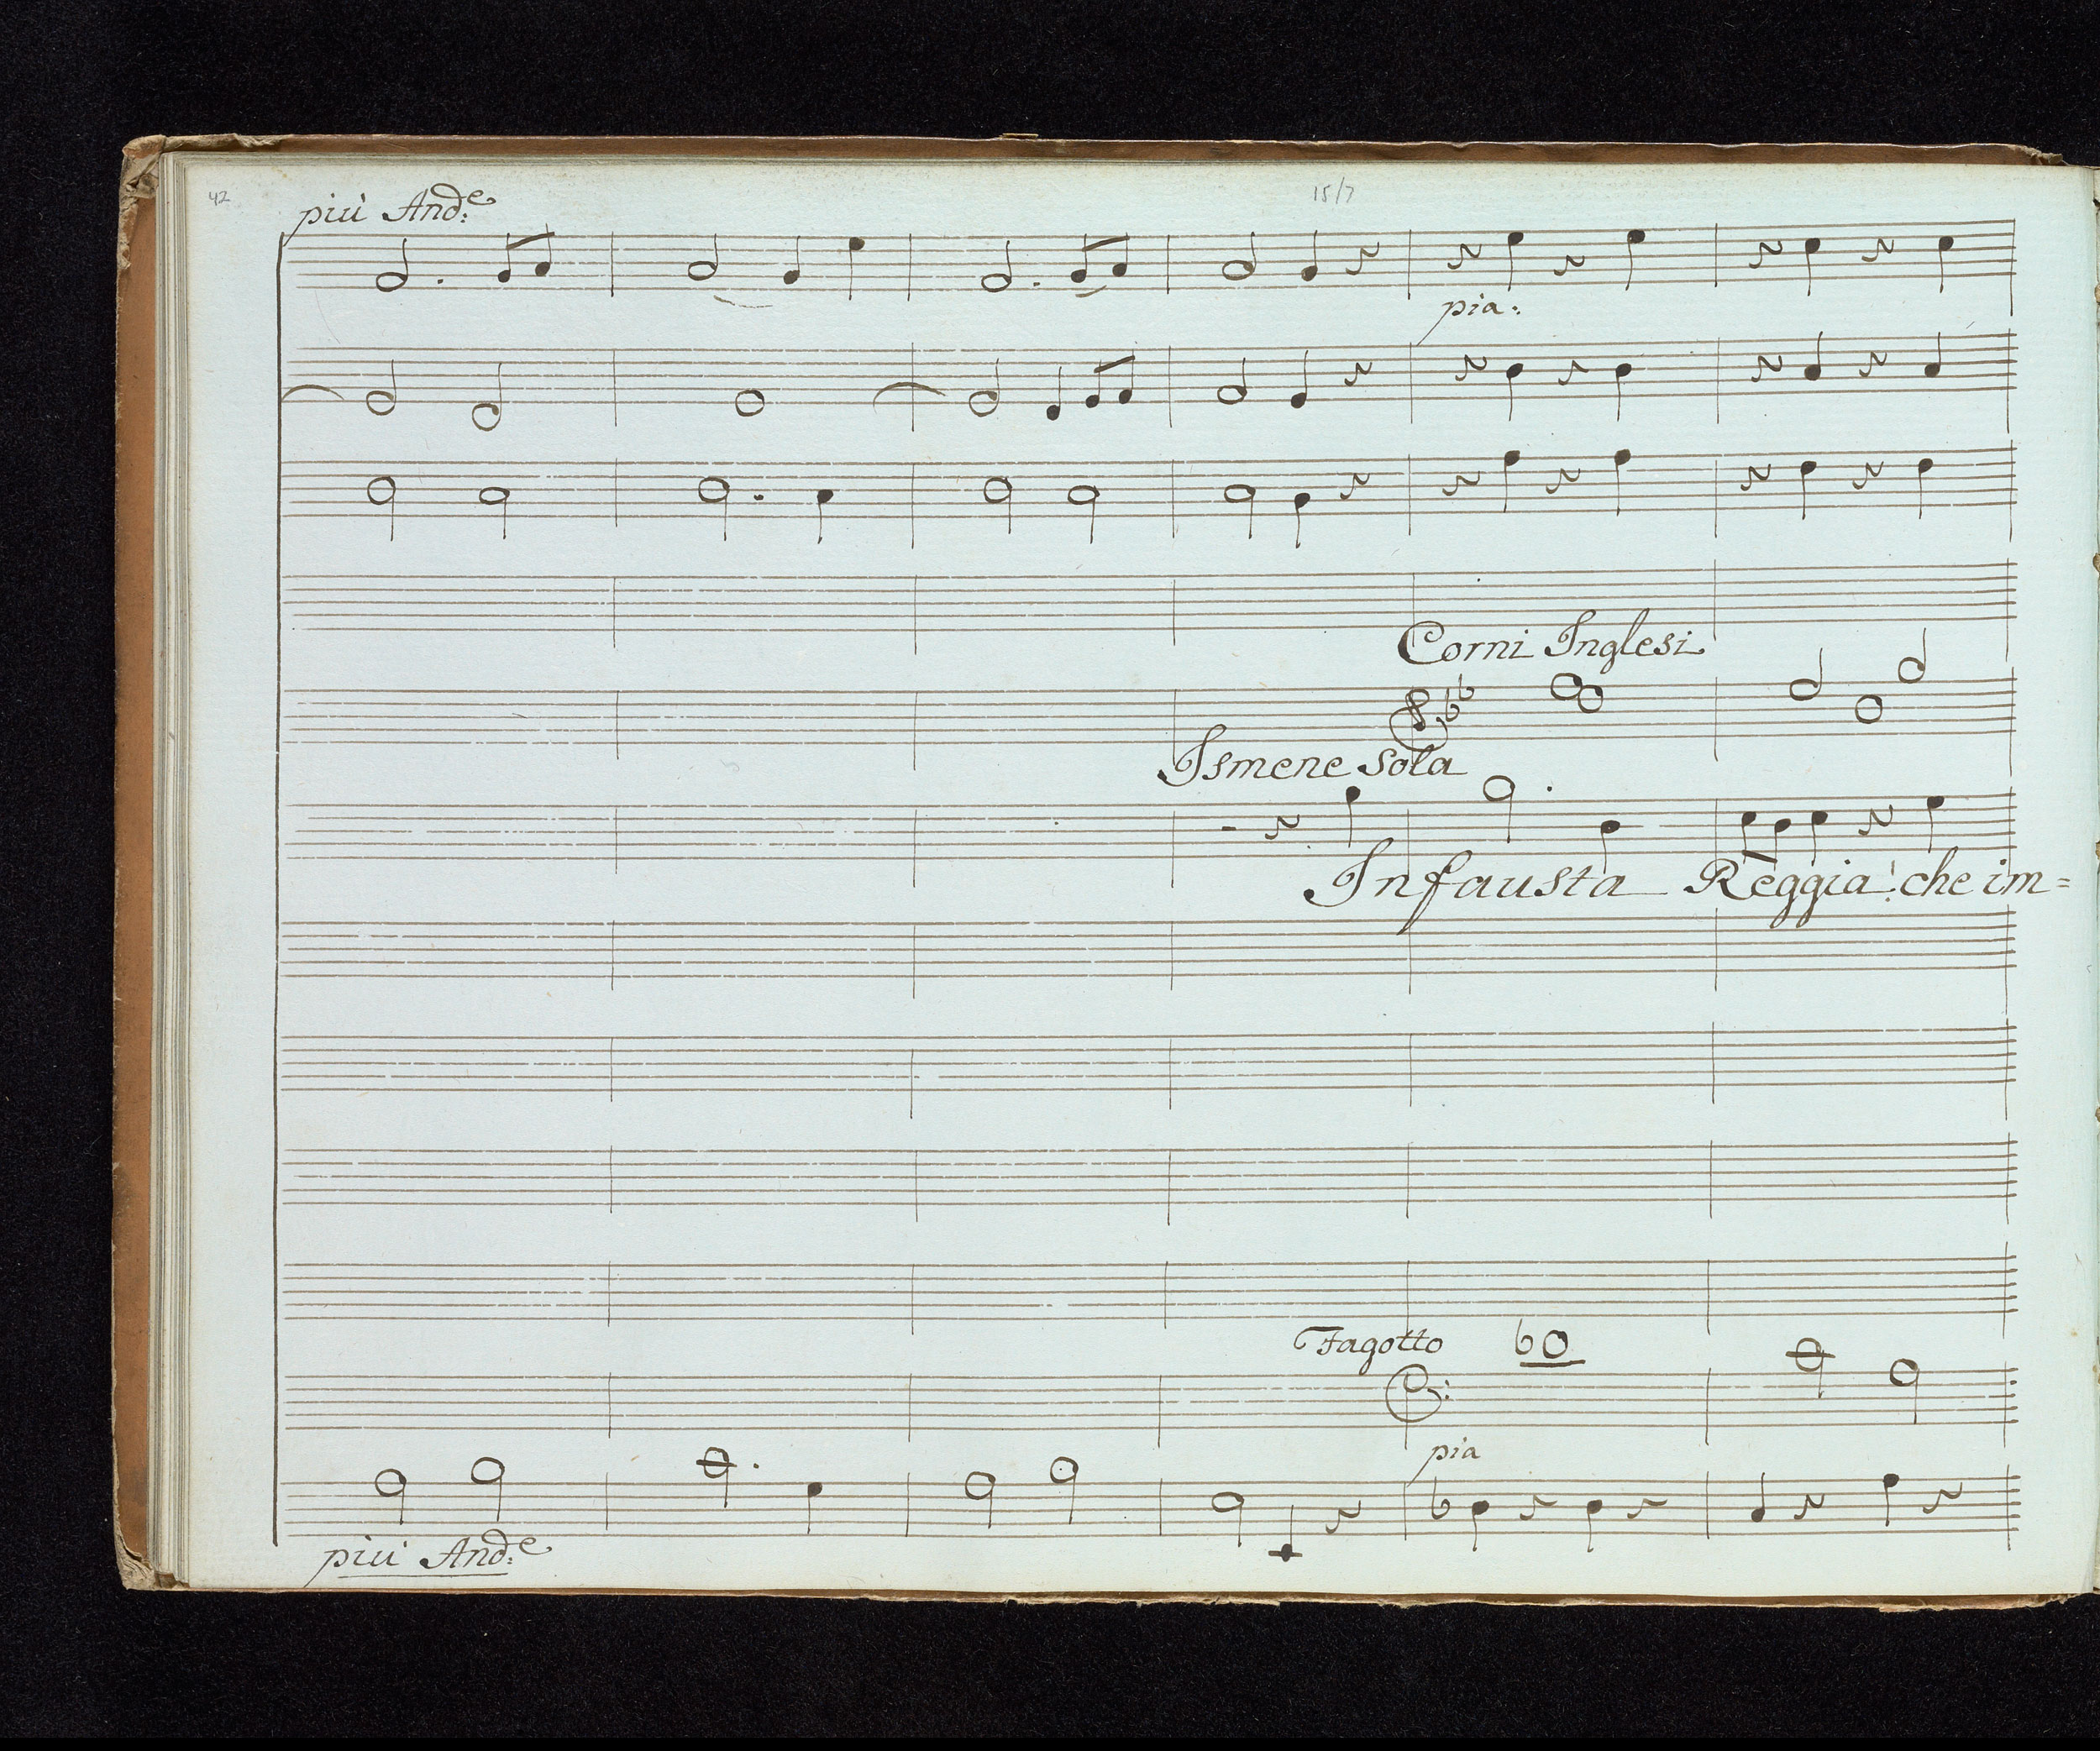 42
15/7
più And:e
pia:
Corni Inglesi
Ismene sola
Infausta Reggia! che im=
Fagotto
pia
più And:e